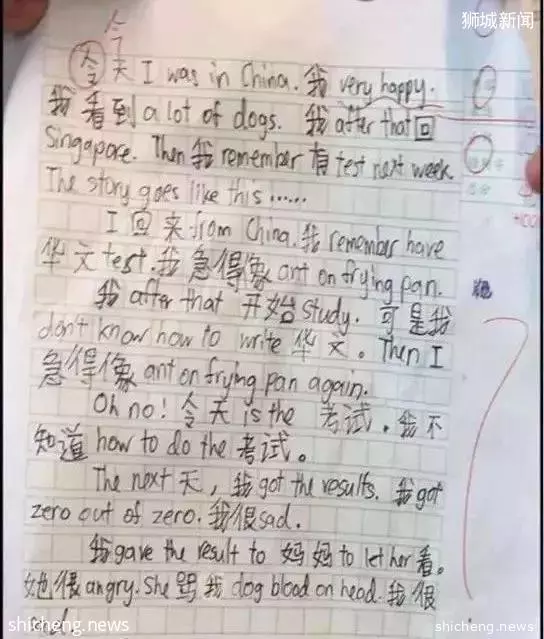 狮城新闻
今
令天 I was in China. 我 very happy.
我看到 a lot of dogs. 我 after that 回
Singapore. Then 我 remember 有 test next week.
The story goes like this ......
I 回来 from China. 我 remember have
华文 test. 我急得像 ant on frying pan.
我 after that 开始 study. 可是我
don't know how to write 华文。Then I
急得像 ant on frying pan again.
Oh no! 令天 is the 考试. 我不
知道 how to do the 考试。
The next 天, 我 got the results. 我 got
zero out of zero. 我很 sad.
我 gave the result to 妈妈 to let her 看。
她很 angry. She 骂我 dog blood on head. 我很
shicheng.news
shicheng.news